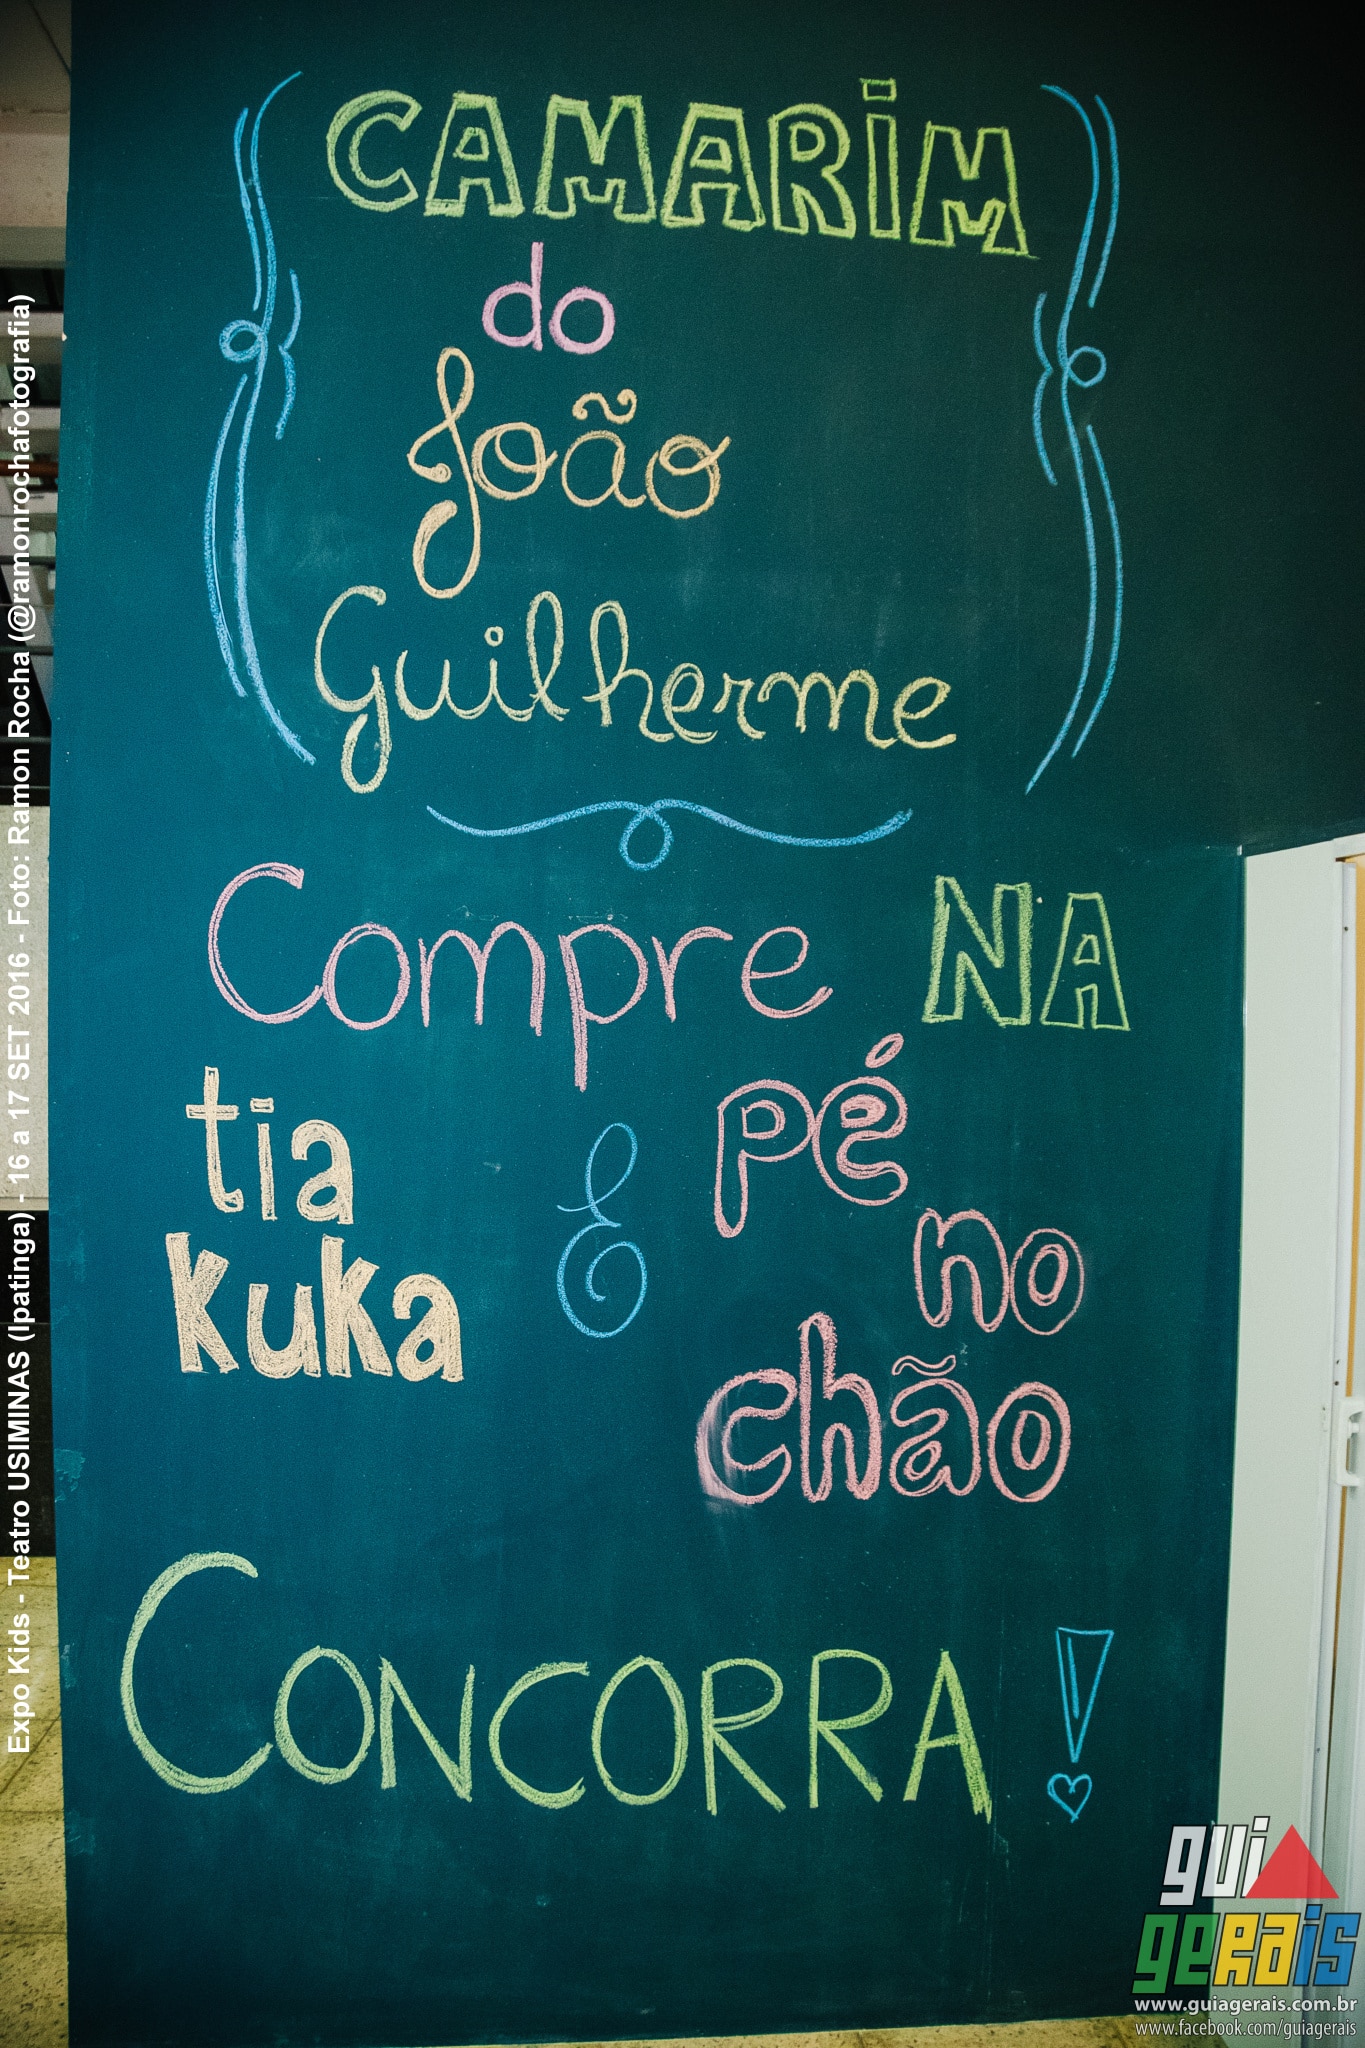 CAMARIM
do
João
Guilherme
Compre NA
tia
kuka
E
pé
no
chão
CONCORRA!
Expo Kids - Teatro USIMINAS (Ipatinga) - 16 a 17 SET 2016 - Foto: Ramon Rocha (@ramonrochafotografia)
gui
gerais
www.guiagerais.com.br
www.facebook.com/guiagerais